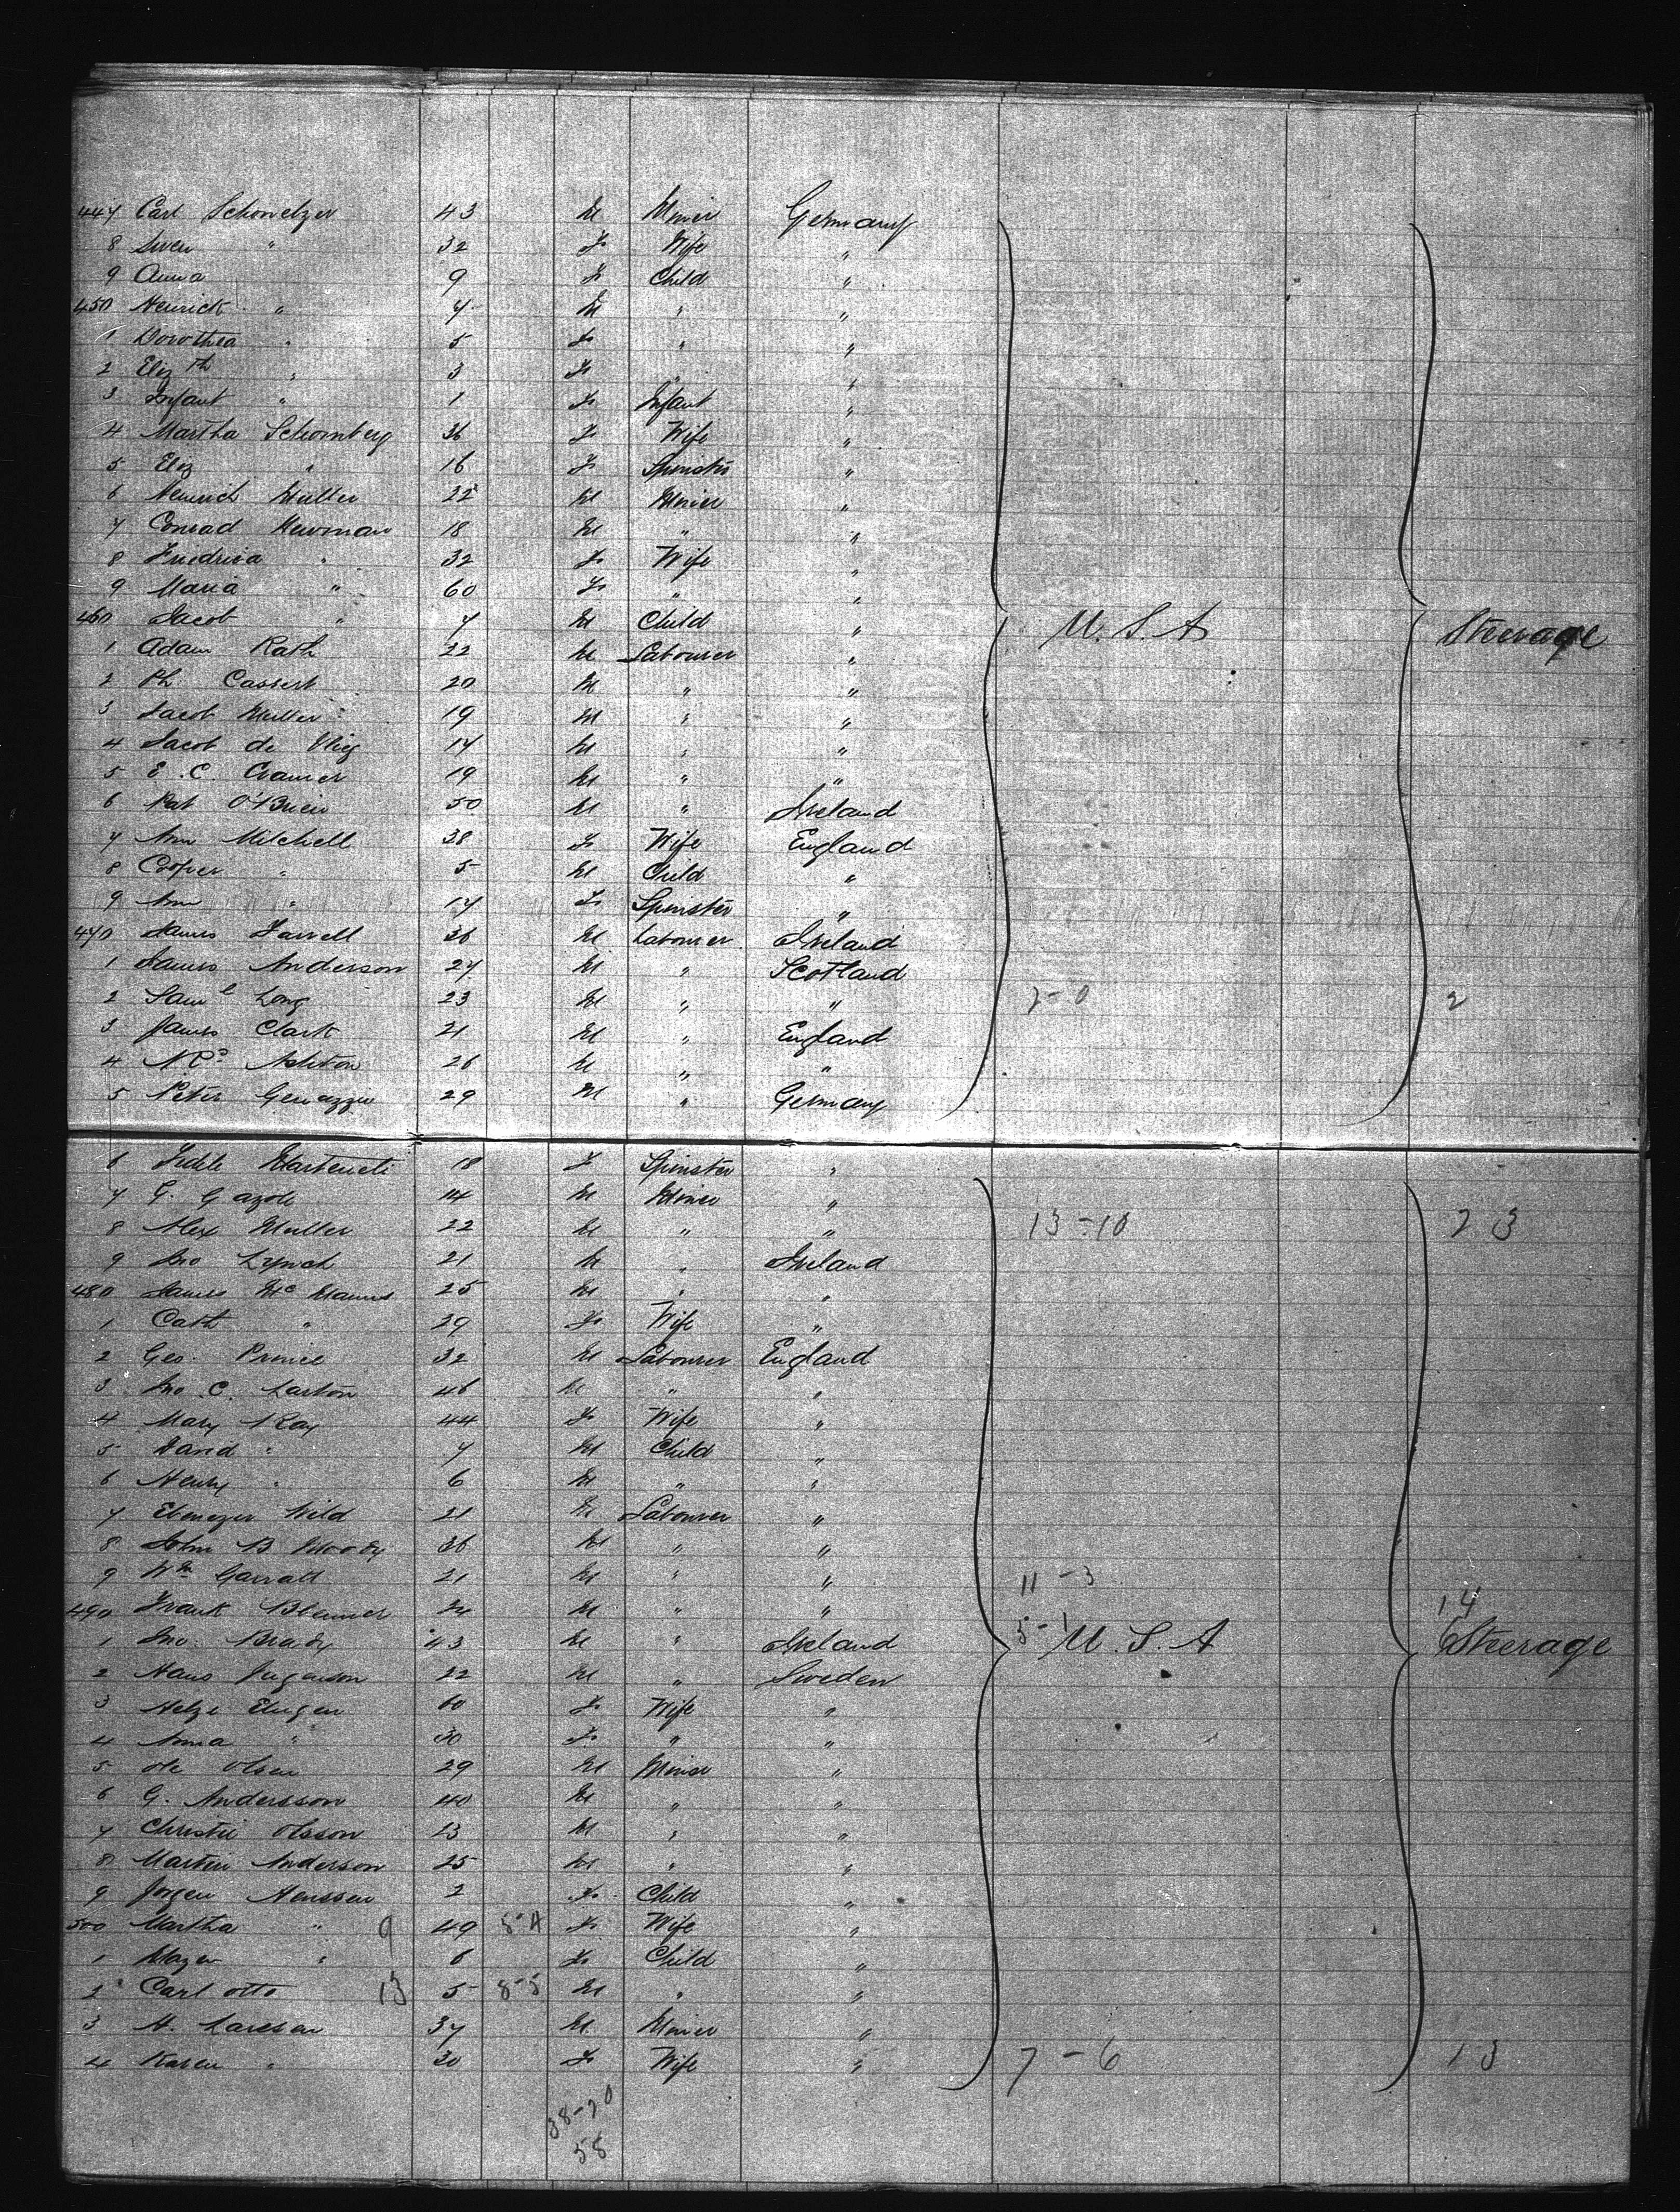 447 Carl Schmelzer 43 M Miner Germany
8 " 32 F Wife "
9 Anna 9 F Child "
450 Henrich " 7 M " "
1 Dorothea " 5 F " "
2 Elizth " 3 F " "
3 Infant " 1 F Infant "
4 Martha Schomberg 36 F Wife "
5 Eliz " 16 F Spinster "
6 Heinrich Muller 22 M Miner "
7 Conrad Newman 18 M " "
8 Friedrica " 32 F Wife "
9 Maria " 60 F " "
460 Jacob " 7 M Child " U.S.A Steerage
1 Adam Rath 22 M Labourer "
2 Ph. Cassert 20 M " "
3 Jacob Muller 19 M " "
4 Jacob de 17 M " "
5 E. C. Cramer 19 M " "
6 Pat O'Brien 50 M " Ireland
7 Ann Mitchell 38 F Wife England
8 Cooper " 5 M Child "
9 Ann " 17 F Spinster "
470 James Farrell 36 M Labourer Ireland
1 James Anderson 27 M " Scotland
2 Saml Long 23 M " " 2-0 2
3 James Clark 21 M " England
4 Ashton 26 M " "
5 Peter 29 M " Germany
6 18 F Spinster "
7 G. Gazole 14 M Miner "
8 Alex Muller 22 M " " 13-10 23
9 Jno Lynch 21 M " Ireland
480 James McManus 25 M " "
1 Cath " 29 F Wife "
2 Geo. Prince 32 M Labourer England
3 Jno. C. Larton 46 M " "
4 Mary Kay 44 F Wife "
5 David " 7 M Child "
6 Henry " 6 M " "
7 Ebenezer Wild 21 M Labourer "
8 John B Moody 36 M " "
9 Wm Garratt 21 M " " 11-3
490 Frank 24 M " " 14
1 Jno. Brady 43 M " Ireland 5-1 U.S.A 6 Steerage
2 Hans Jurgenson 22 M " Sweden
3 Helge 60 F Wife "
4 Anna " 30 F " "
5 Ole Olsen 29 M Miner "
6 G. Andersson 40 M " "
7 Christie Olsson 23 M " "
8 Martin Anderson 25 M " "
9 Jorgen Henssen 2 F Child "
500 Martha " 9 49 5-4 F Wife "
1 " 6 F Child "
2 Carl Otto 13 5 8-5 M " "
3 H. Larsen 37 M Miner "
4 Karen " 30 F Wife " 7-6 13
38-20
58